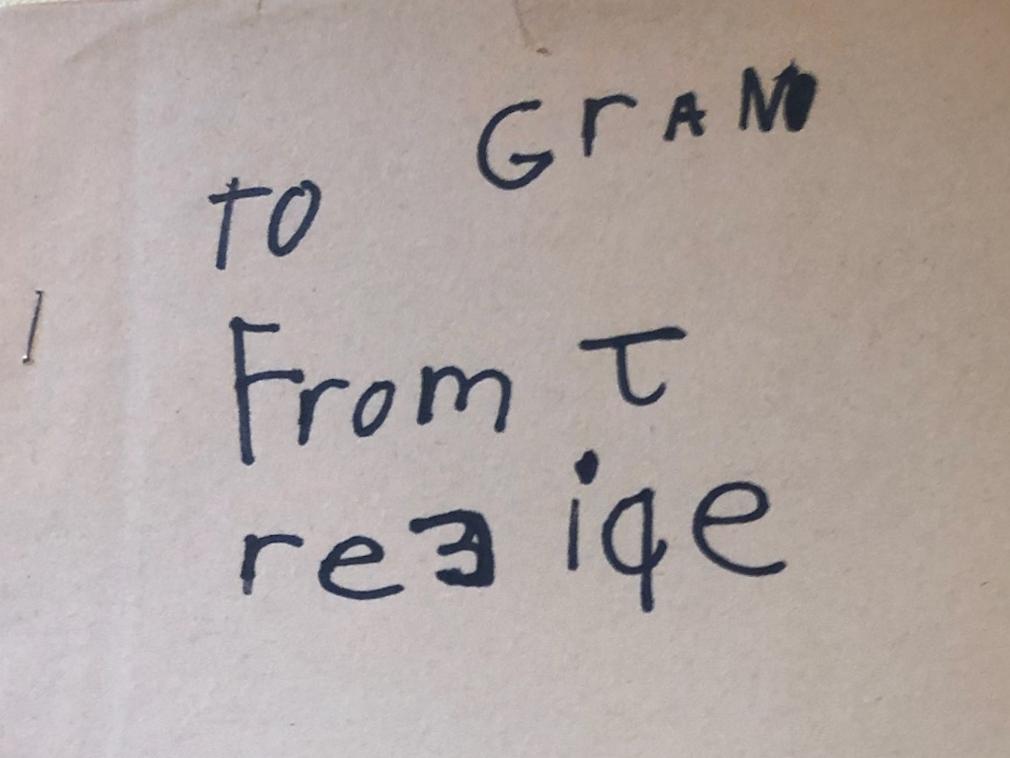 To GrAN
From T
reziqe